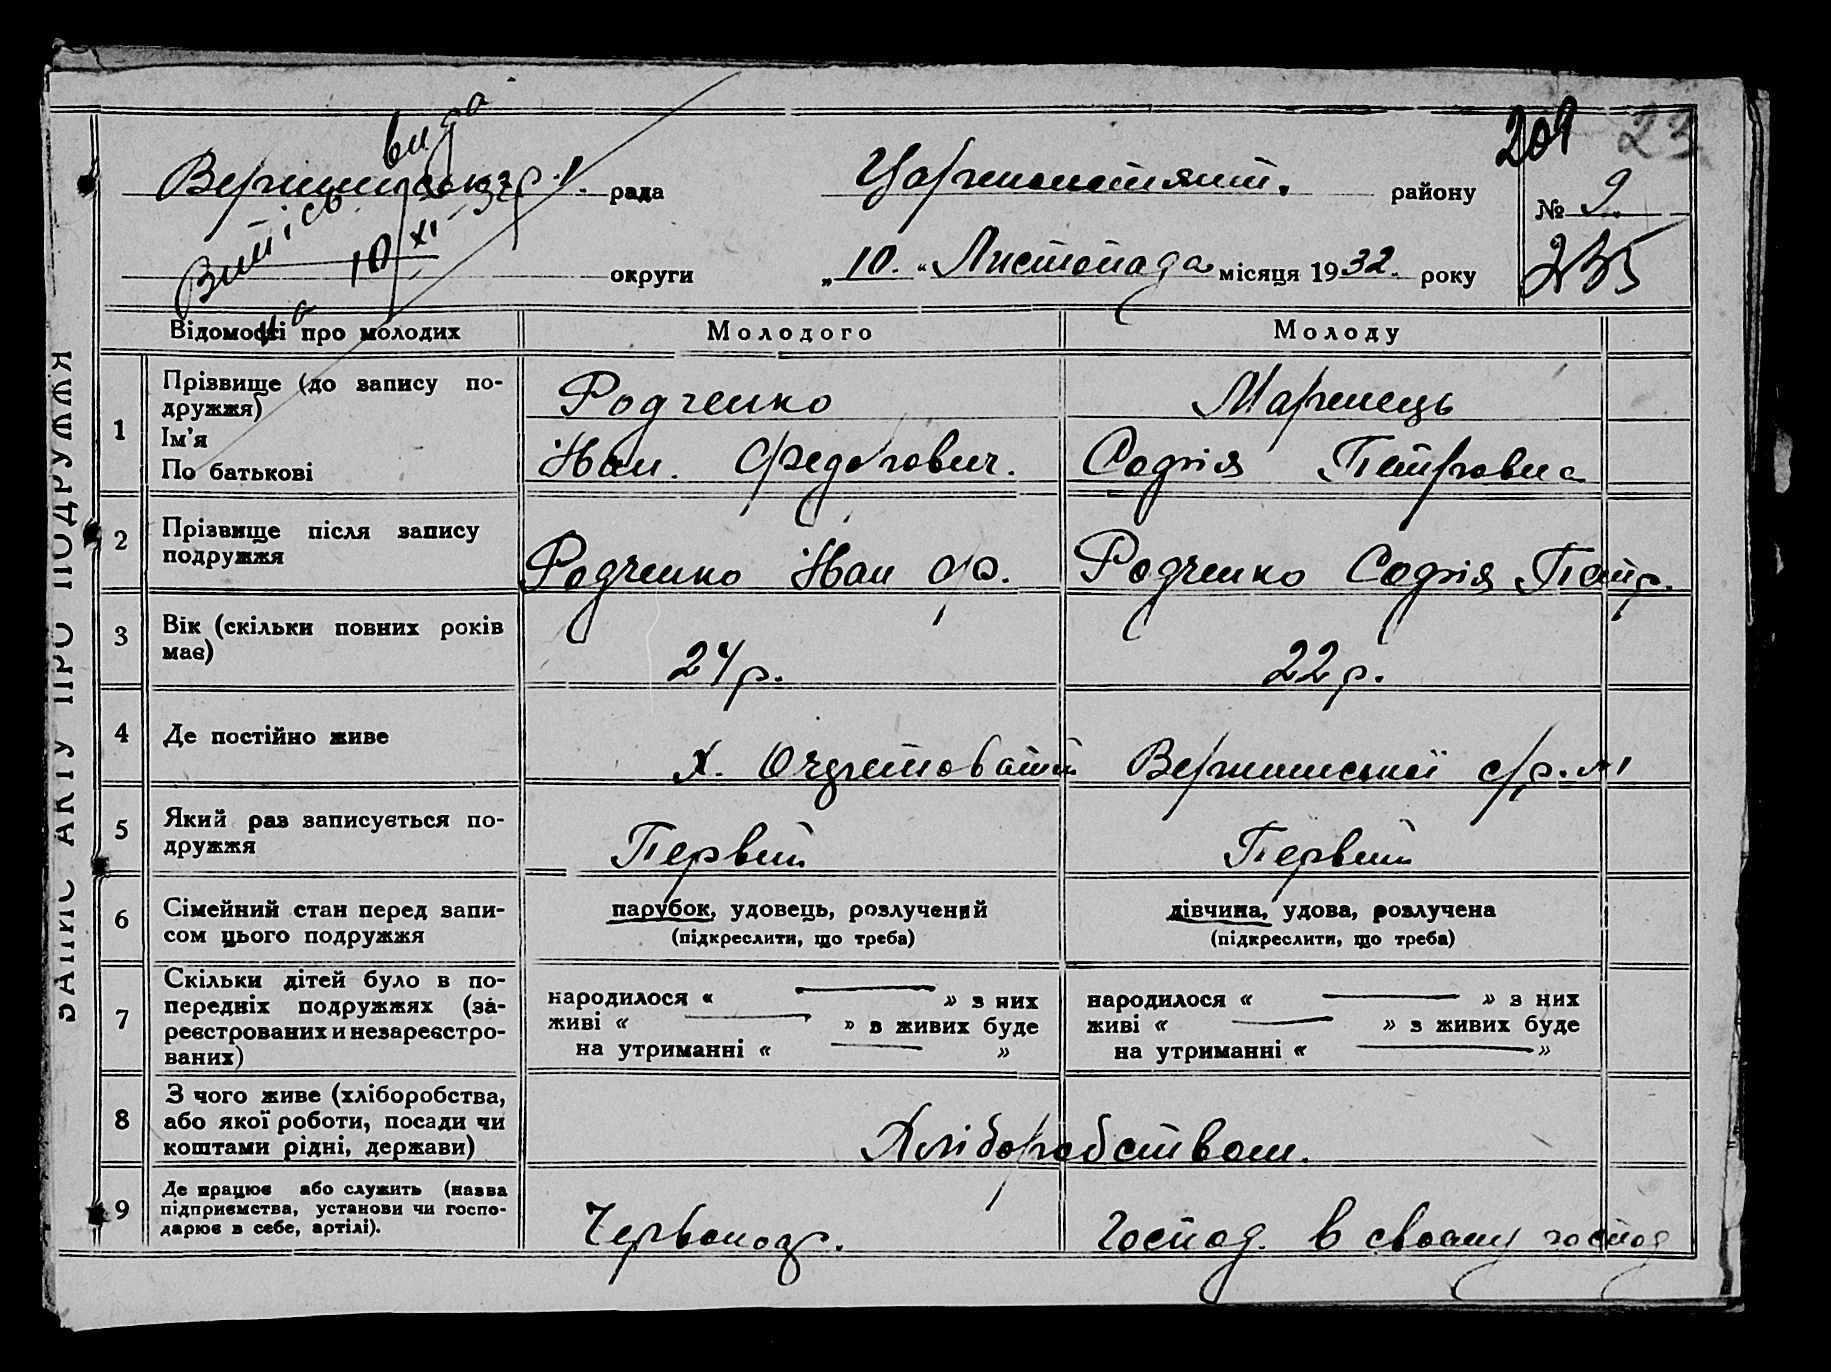 209 23
Вершинська рада Царичанський району № 9.
Витіс видана 10/XI-32 р.
округи „10.“ Листопада місяця 1932. року 235
ЗАПИС АКТУ ПРО ПОДРУЖЖЯ
Відомості про молодих Молодого Молоду
1 Прізвище (до запису по-
дружжя) Родченко Марченець
Ім'я
По батькові Іван. Федорович. Софія Петровна
2 Прізвище після запису
подружжя Родченко Іван Ф. Родченко Софія Петр.
3 Вік (скільки повних років
має) 24 р. 22 р.
4 Де постійно живе х. Вершинської с/р.
5 Який раз записується по-
дружжя Первий Первий
6 Сімейний стан перед запи-
сом цього подружжя парубок, удовець, розлучений дівчина, удова, розлучена
(підкреслити, що треба) (підкреслити, що треба)
7 Скільки дітей було в по-
передніх подружжях (за-
реєстрованих и незареєстро-
ваних) народилося « — » з них народилося « — » з них
живі « — » з живих буде живі « — » з живих буде
на утриманні « — » на утриманні « — »
8 З чого живе (хліборобства,
або якої роботи, посади чи
коштами рідні, держави) Хліборобством.
9 Де працює або служить (назва
підприємства, установи чи госпо-
дарює в себе, артілі). Червоноз. Господ. в своему господ